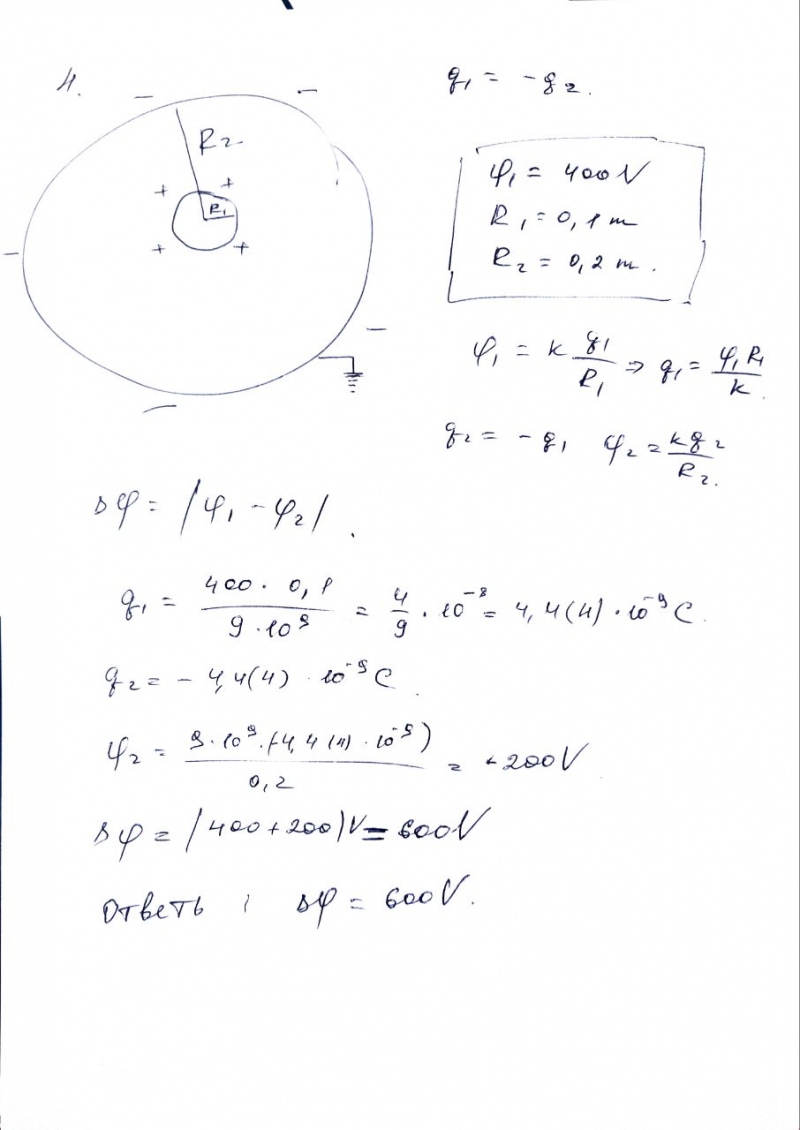 4.
q₁ = -q₂.
R₂
R₁
φ₁ = 400V
R₁ = 0,1 m
R₂ = 0,2 m.
φ₁ = k q₁/R₁ ⇒ q₁ = φ₁R₁/k.
q₂ = -q₁ φ₂ = kq₂/R₂.
Δφ = |φ₁ - φ₂|.
q₁ = 400 · 0,1 / 9·10⁹ = 4/9 · 10⁻⁸ = 4,4(4) · 10⁻⁹ C.
q₂ = - 4,4(4) · 10⁻⁹ C.
φ₂ = 9·10⁹·(-4,4(4)·10⁻⁹) / 0,2 = -200V.
Δφ = |400 + 200|V = 600V
Ответь : Δφ = 600V.